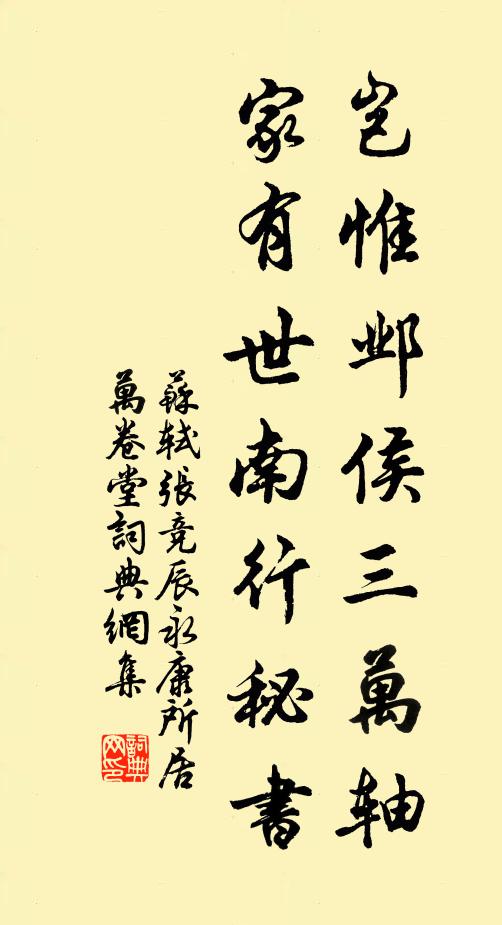 岂惟邺侯三萬轴
家有世南行秘書
蘇轼張竞辰永康所居
萬卷堂詞典網集
詞典网印